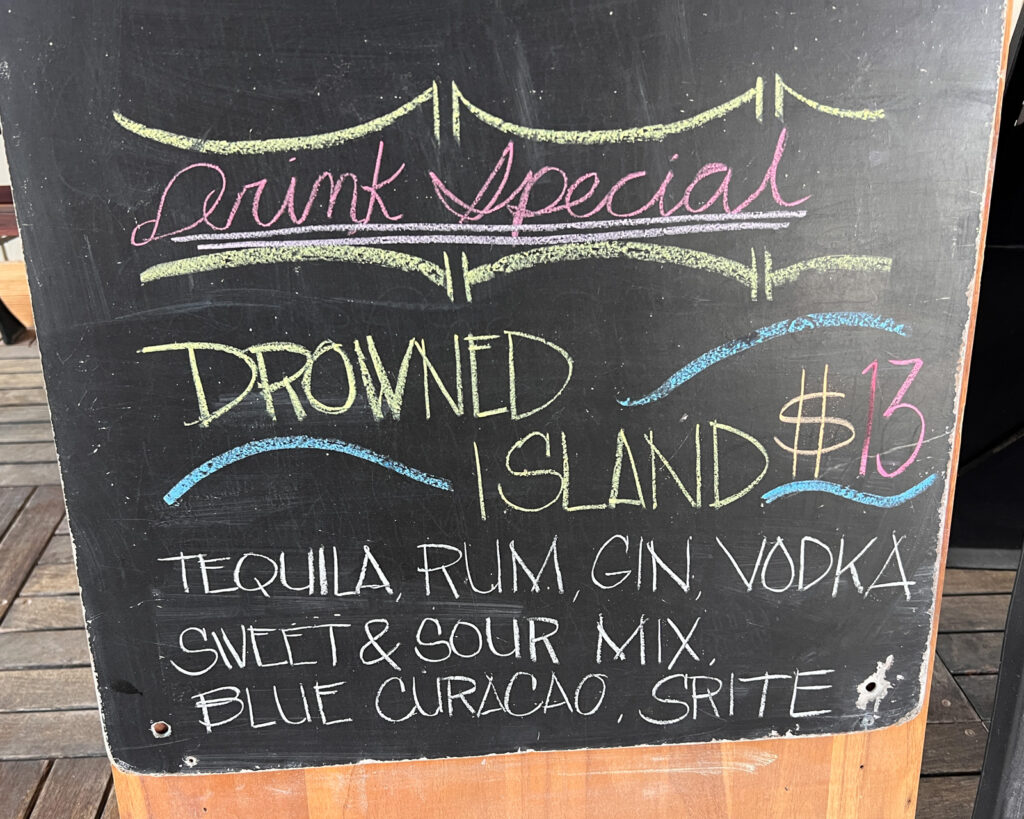 Drink Special
DROWNED
ISLAND $13
TEQUILA, RUM, GIN, VODKA
SWEET & SOUR MIX,
BLUE CURACAO, SRITE